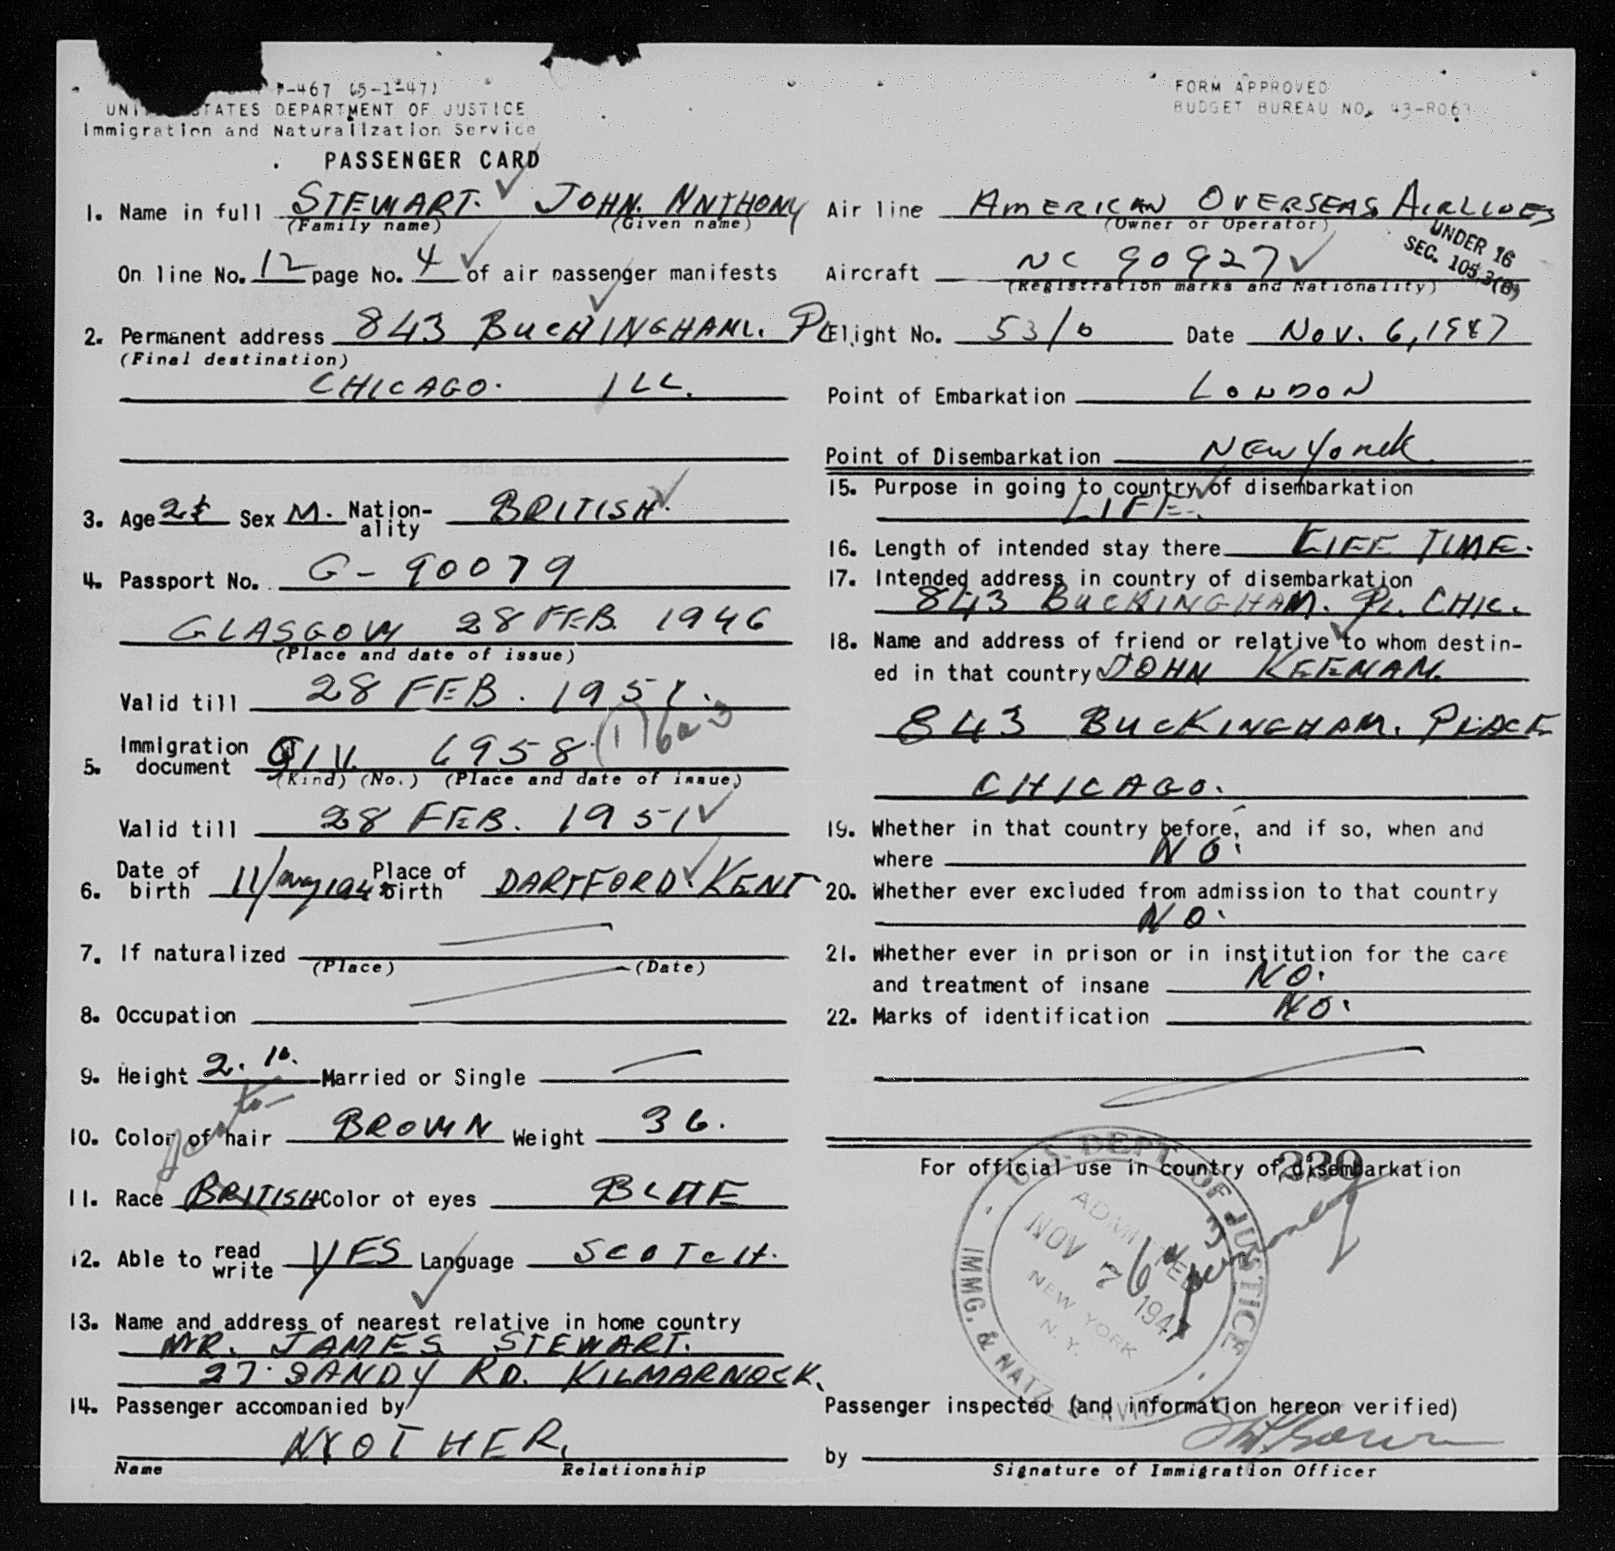 P-467 (5-1-47)
UNI TATES DEPARTMENT OF JUSTICE
Immigration and Naturalization Service
PASSENGER CARD
FORM APPROVED
BUDGET BUREAU NO. 43-R063
1. Name in full STEWART. JOHN. ANTHONY
(Family name) (Given name)
On line No. 12 page No. 4 of air passenger manifests
2. Permanent address 843 BUCKINGHAM. PL
(Final destination)
CHICAGO. ILL.
3. Age Sex M. Nation-ality BRITISH.
4. Passport No. G-90079
GLASGOW 28 FEB. 1946
(Place and date of issue)
Valid till 28 FEB. 1951.
5. Immigration document QIV. 6958
(Kind) (No.) (Place and date of issue)
Valid till 28 FEB. 1951
6. Date of birth 11/may/194 Place of birth DARTFORD. KENT
7. If naturalized
(Place) (Date)
8. Occupation
9. Height 2. 10. Married or Single
10. Color of hair BROWN Weight 36.
11. Race BRITISH Color of eyes BLUE
12. Able to read write YES Language SCOTCH.
13. Name and address of nearest relative in home country
MR. JAMES STEWART.
27 SANDY RD. KILMARNOCK.
14. Passenger accompanied by
MOTHER.
Name Relationship
Air line AMERICAN OVERSEAS AIRLINES
(Owner or Operator)
UNDER 16
SEC. 105.3(B)
Aircraft NC 90927
(Registration marks and Nationality)
Flight No. 53/6 Date Nov. 6, 1947
Point of Embarkation LONDON
Point of Disembarkation NEW York
15. Purpose in going to country of disembarkation
LIFE.
16. Length of intended stay there LIFE TIME.
17. Intended address in country of disembarkation
843 BUCKINGHAM. PL. CHIC.
18. Name and address of friend or relative to whom destin-
ed in that country JOHN KEENAN.
843 BUCKINGHAM. PLACE
CHICAGO.
19. Whether in that country before, and if so, when and
where NO.
20. Whether ever excluded from admission to that country
NO.
21. Whether ever in prison or in institution for the care
and treatment of insane NO.
22. Marks of identification NO.
For official use in country of disembarkation
339
U.S. DEPT. OF JUSTICE
ADMITTED
NOV 7 1947
NEW YORK
N. Y.
IMMG. & NATZ. SERVICE
Passenger inspected (and information hereon verified)
by
Signature of Immigration Officer